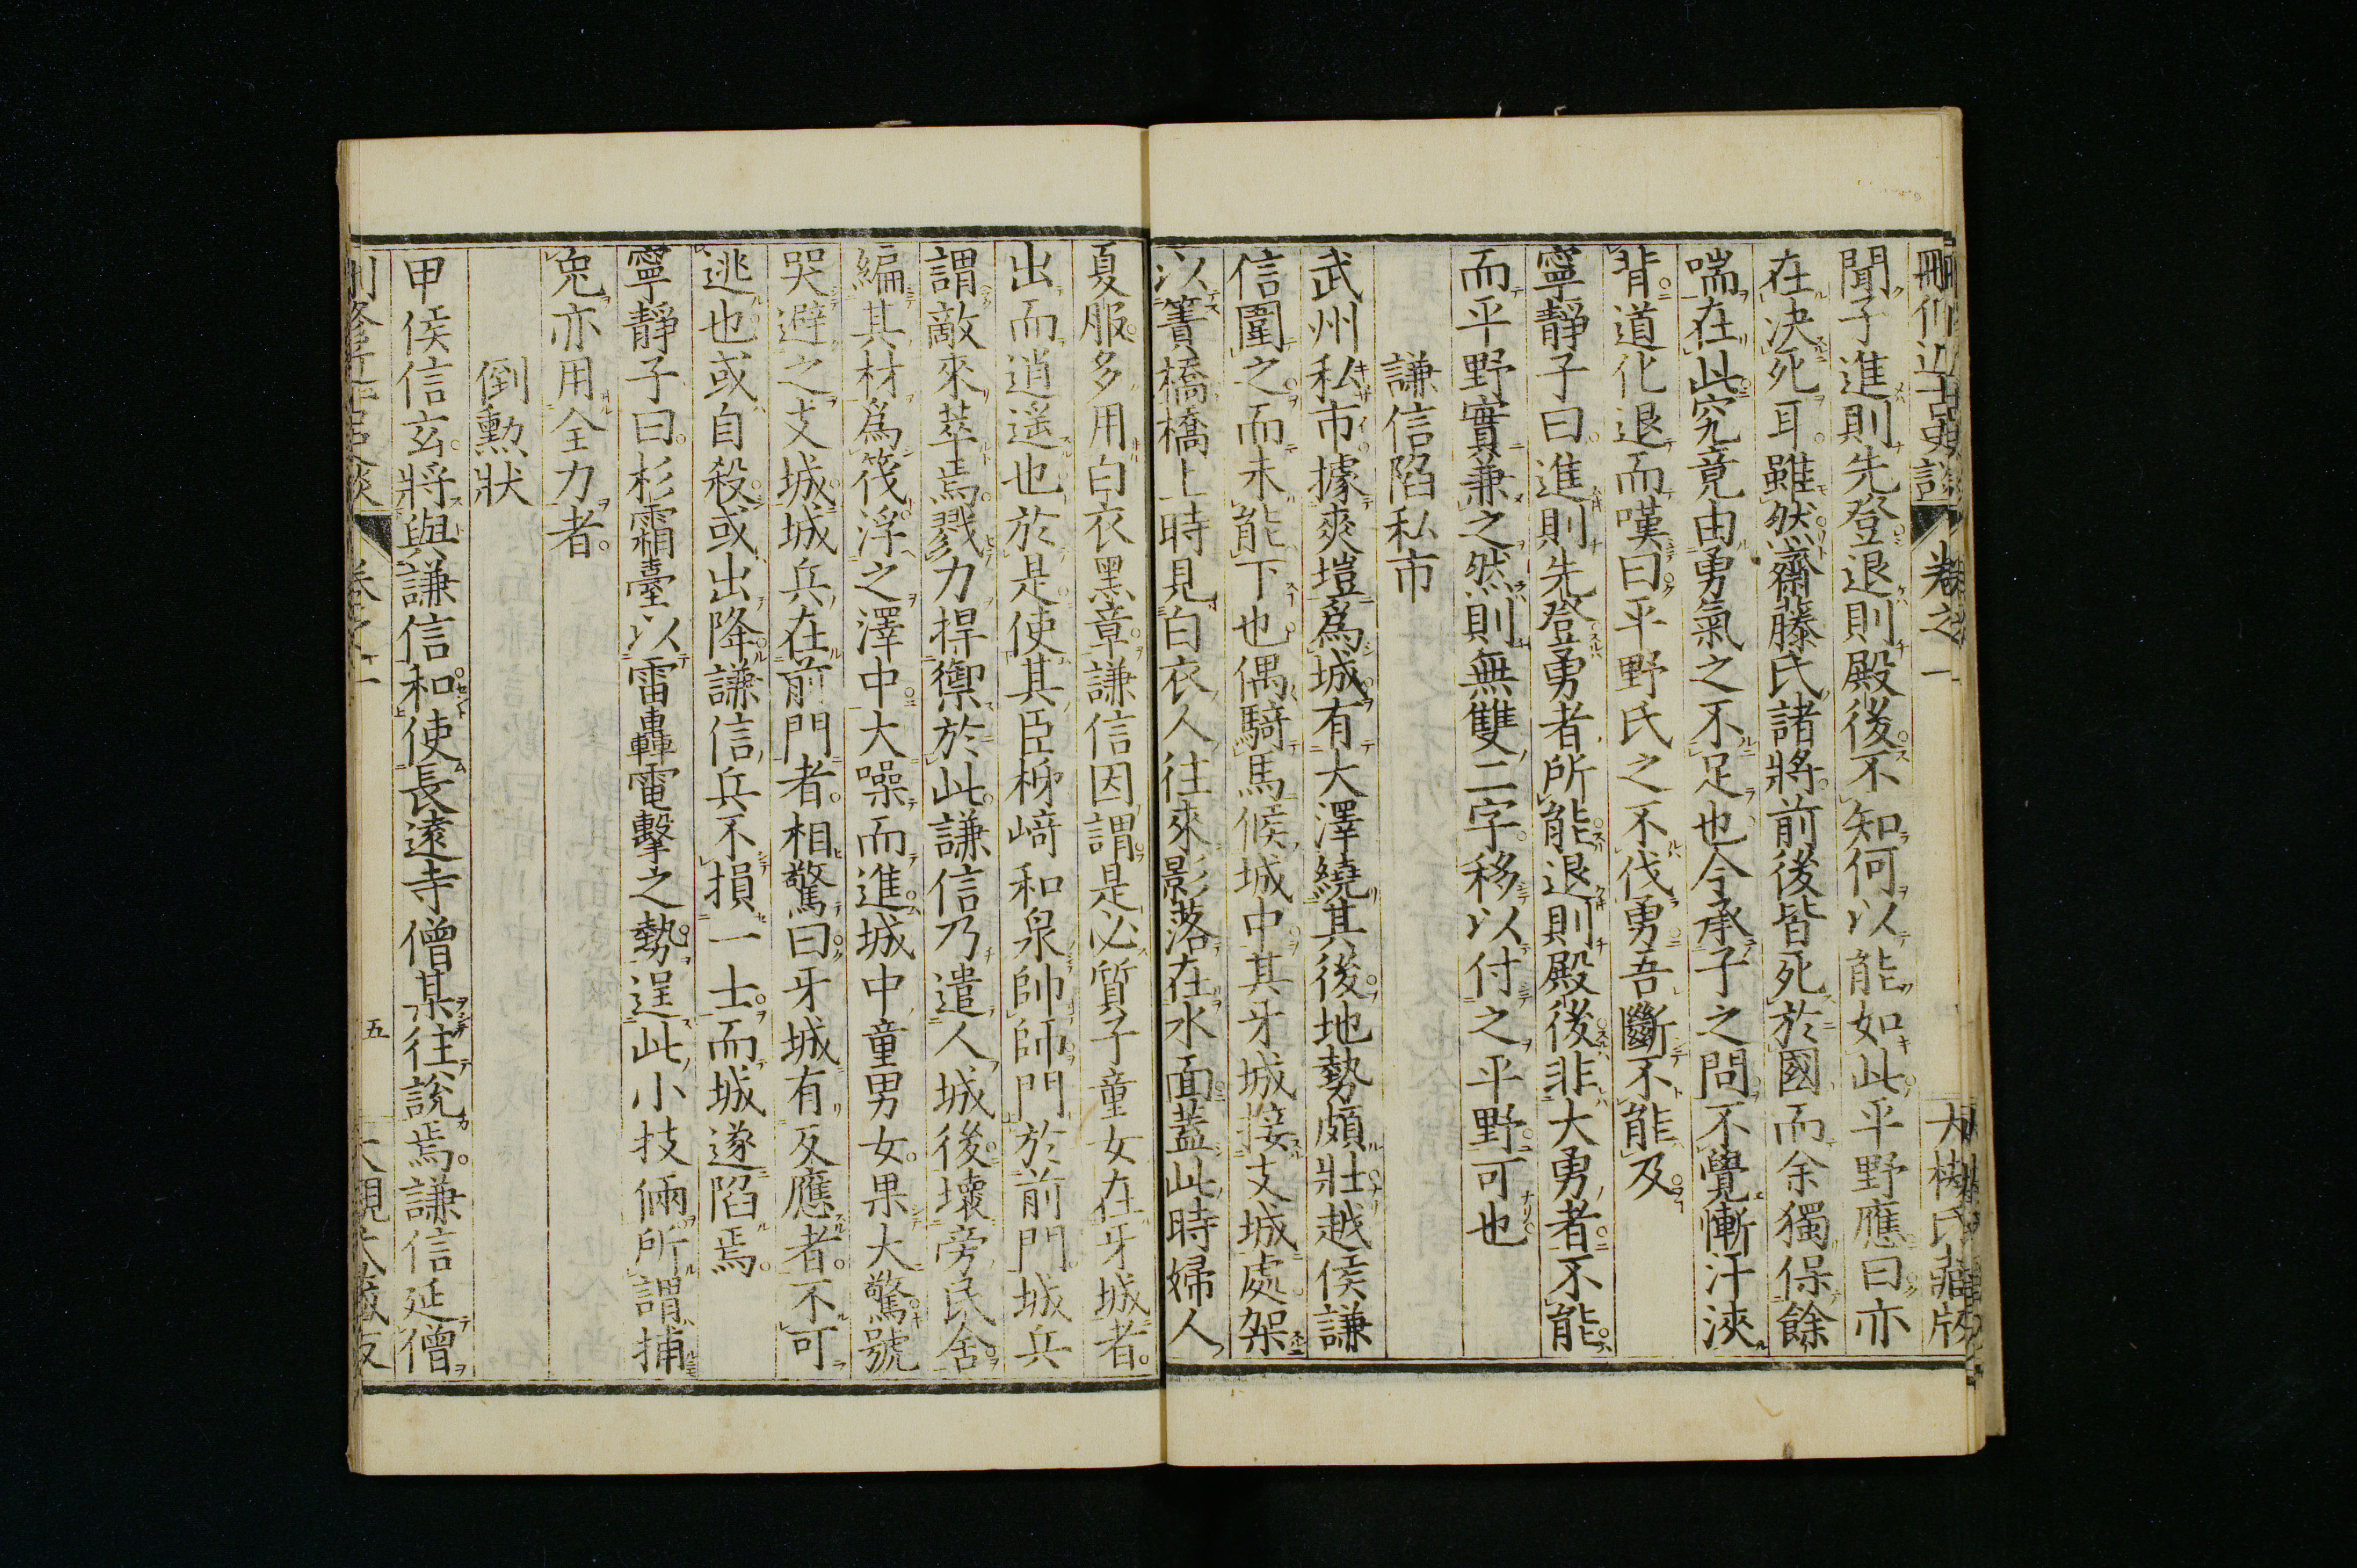 卷之一
聞子進則先登退則殿後不知何以能如此平野應曰亦
在决死耳雖然齋藤氏諸將前後皆死於國而余獨保餘
喘在此究竟由勇氣之不足也今承子之問不覺慚汗浹
背道化退而嘆曰平野氏之不伐勇吾斷不能及
寧靜子曰進則先登勇者所能退則殿後非大勇者不能
而平野實兼之然則無雙二字移以付之平野可也
謙信陷私市
武州私市據爽塏爲城有大澤繞其後地勢頗壯越侯謙
信圍之而未能下也偶騎馬候城中其牙城接支城處架
以簀橋橋上時見白衣人往來影落在水面蓋此時婦人
夏服多用白衣黑章謙信因謂是必質子童女在牙城者
出而逍遥也於是使其臣柳﨑和泉帥師門於前門城兵
謂敵來萃焉戮力捍禦於此謙信乃遣人城後壞旁民舍
編其材爲筏浮之澤中大噪而進城中童男女果大驚號
哭避之支城城兵在前門者相驚曰牙城有反應者不可
逃也或自殺或出降謙信兵不損一士而城遂陷焉
寧靜子曰杉霜臺以雷轟電擊之勢逞此小技倆所謂捕
兎亦用全力者
倒勲狀
甲侯信玄將與謙信和使長遠寺僧某往說焉謙信延僧
五